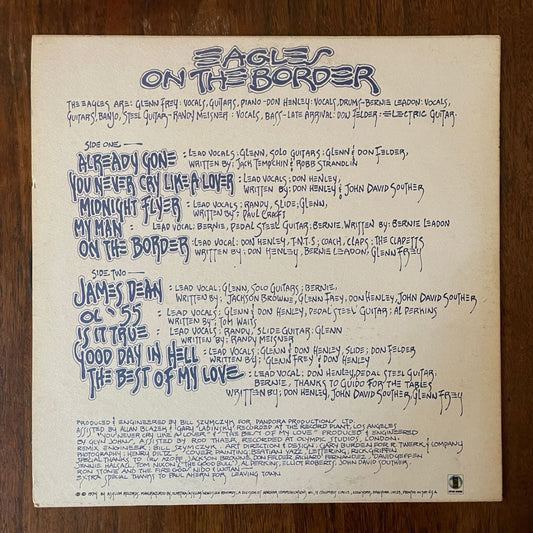 EAGLES
ON THE BORDER
THE EAGLES ARE: GLENN FREY: VOCALS, GUITARS, PIANO - DON HENLEY: VOCALS, DRUMS - BERNIE LEADON: VOCALS,
GUITARS, BANJO, STEEL GUITAR - RANDY MEISNER: VOCALS, BASS - LATE ARRIVAL: DON FELDER: ELECTRIC GUITAR.
SIDE ONE
ALREADY GONE : LEAD VOCALS: GLENN, SOLO GUITARS: GLENN & DON FELDER,
WRITTEN BY: JACK TEMPCHIN & ROBB STRANDLIN
YOU NEVER CRY LIKE A LOVER : LEAD VOCALS: DON HENLEY,
WRITTEN BY: DON HENLEY & JOHN DAVID SOUTHER
MIDNIGHT FLYER : LEAD VOCALS: RANDY, SLIDE; GLENN,
WRITTEN BY: PAUL CRAFT
MY MAN : LEAD VOCAL: BERNIE, PEDAL STEEL GUITAR: BERNIE. WRITTEN BY: BERNIE LEADON
ON THE BORDER LEAD VOCAL: DON HENLEY, T.N.T.S; COACH, CLAPS: THE CLAPETTS
WRITTEN BY: DON HENLEY, BERNIE LEADON, GLENN FREY
SIDE TWO
JAMES DEAN : LEAD VOCAL: GLENN, SOLO GUITARS: BERNIE,
WRITTEN BY: JACKSON BROWNE, GLENN FREY, DON HENLEY, JOHN DAVID SOUTHER
OL' 55 : LEAD VOCALS: GLENN & DON HENLEY, PEDAL STEEL GUITAR: AL PERKINS
WRITTEN BY: TOM WAITS
IS IT TRUE : LEAD VOCALS: RANDY, SLIDE GUITAR: GLENN
WRITTEN BY: RANDY MEISNER
GOOD DAY IN HELL : LEAD VOCALS: GLENN & DON HENLEY, SLIDE: DON FELDER
WRITTEN BY: GLENN FREY & DON HENLEY
THE BEST OF MY LOVE : LEAD VOCAL: DON HENLEY, PEDAL STEEL GUITAR:
BERNIE, THANKS TO GUIDO FOR THE TABLES
WRITTEN BY: DON HENLEY, JOHN DAVID SOUTHER, GLENN FREY
PRODUCED & ENGINEERED BY BILL SZYMCZYK FOR PANDORA PRODUCTIONS LTD.
ASSISTED BY ALLAN BLAZEK & GARY LADINSKY, RECORDED AT THE RECORD PLANT, LOS ANGELES
"YOU NEVER CRY LIKE A LOVER" & "THE BEST OF MY LOVE" PRODUCED & ENGINEERED
BY GLYN JOHNS, ASSISTED BY ROD THAER, RECORDED AT OLYMPIC STUDIOS, LONDON.
REMIX ENGINEER: BILL SZYMCZYK. ART DIRECTION & DESIGN: GARY BURDEN FOR R. TWERK & COMPANY
PHOTOGRAPHY: HENRY DILTZ COVER PAINTING: BEATIAN YAZZ, LETTERING: RICK GRIFFIN
SPECIAL THANKS TO IRV AZOFF, JACKSON BROWNE, DON FELDER, RICHARD FERNANDEZ, DAVID GEFFEN
JENNIE HALSALL, TOM NIXON ("THE GOOD BULL"), AL PERKINS, ELLIOT ROBERTS, JOHN DAVID SOUTHER,
RON STONE AND THE FIRE GOD, NIDO & WOTAN
EXTRA SPECIAL THANKS TO PAUL AHERN FOR LEAVING TOWN.